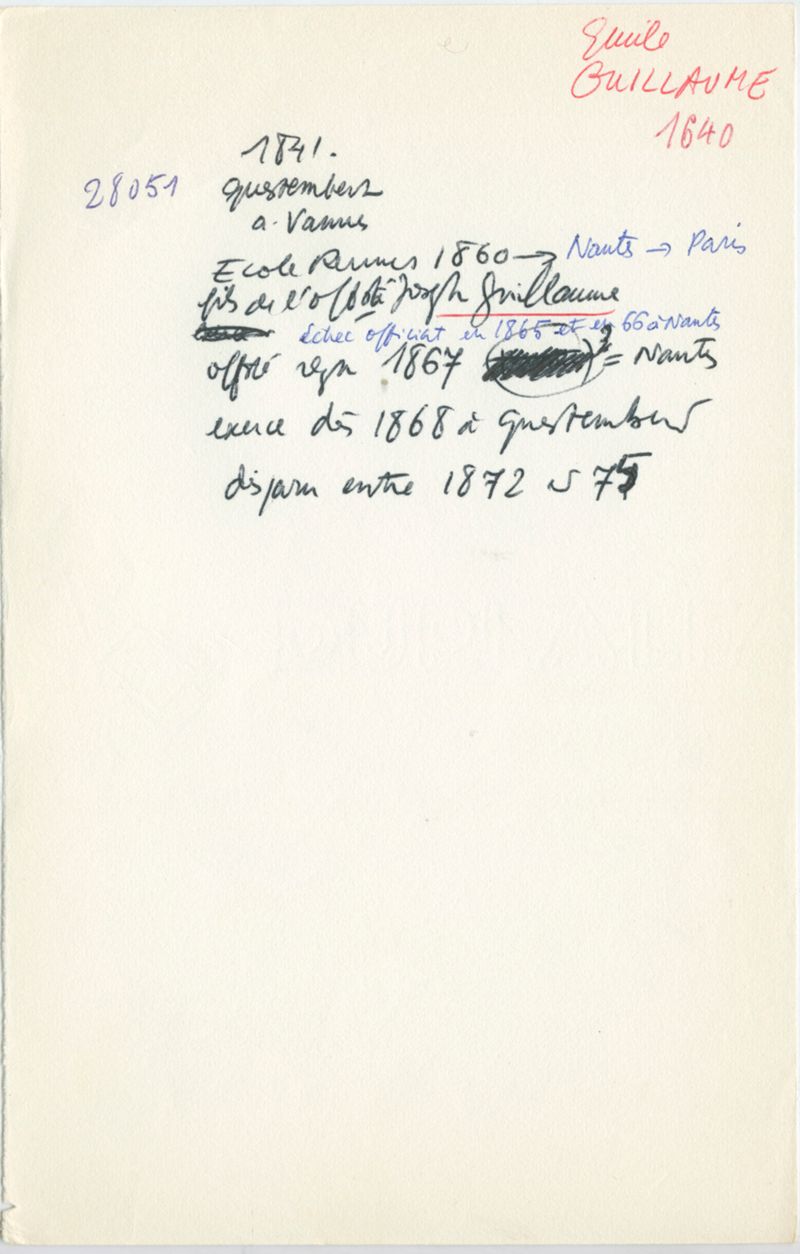 Emile
GUILLAUME
1640
1841.
28051 Questembert
a. Vannes
Ecole Rennes 1860 → Nantes → Paris
fils de l'offsté Joseph Guillaume
échec officiat en 1865 et en 66 à Nantes
offsté 1867 2e = Nantes
exerce dès 1868 à Questembert
disparu entre 1872 et 75